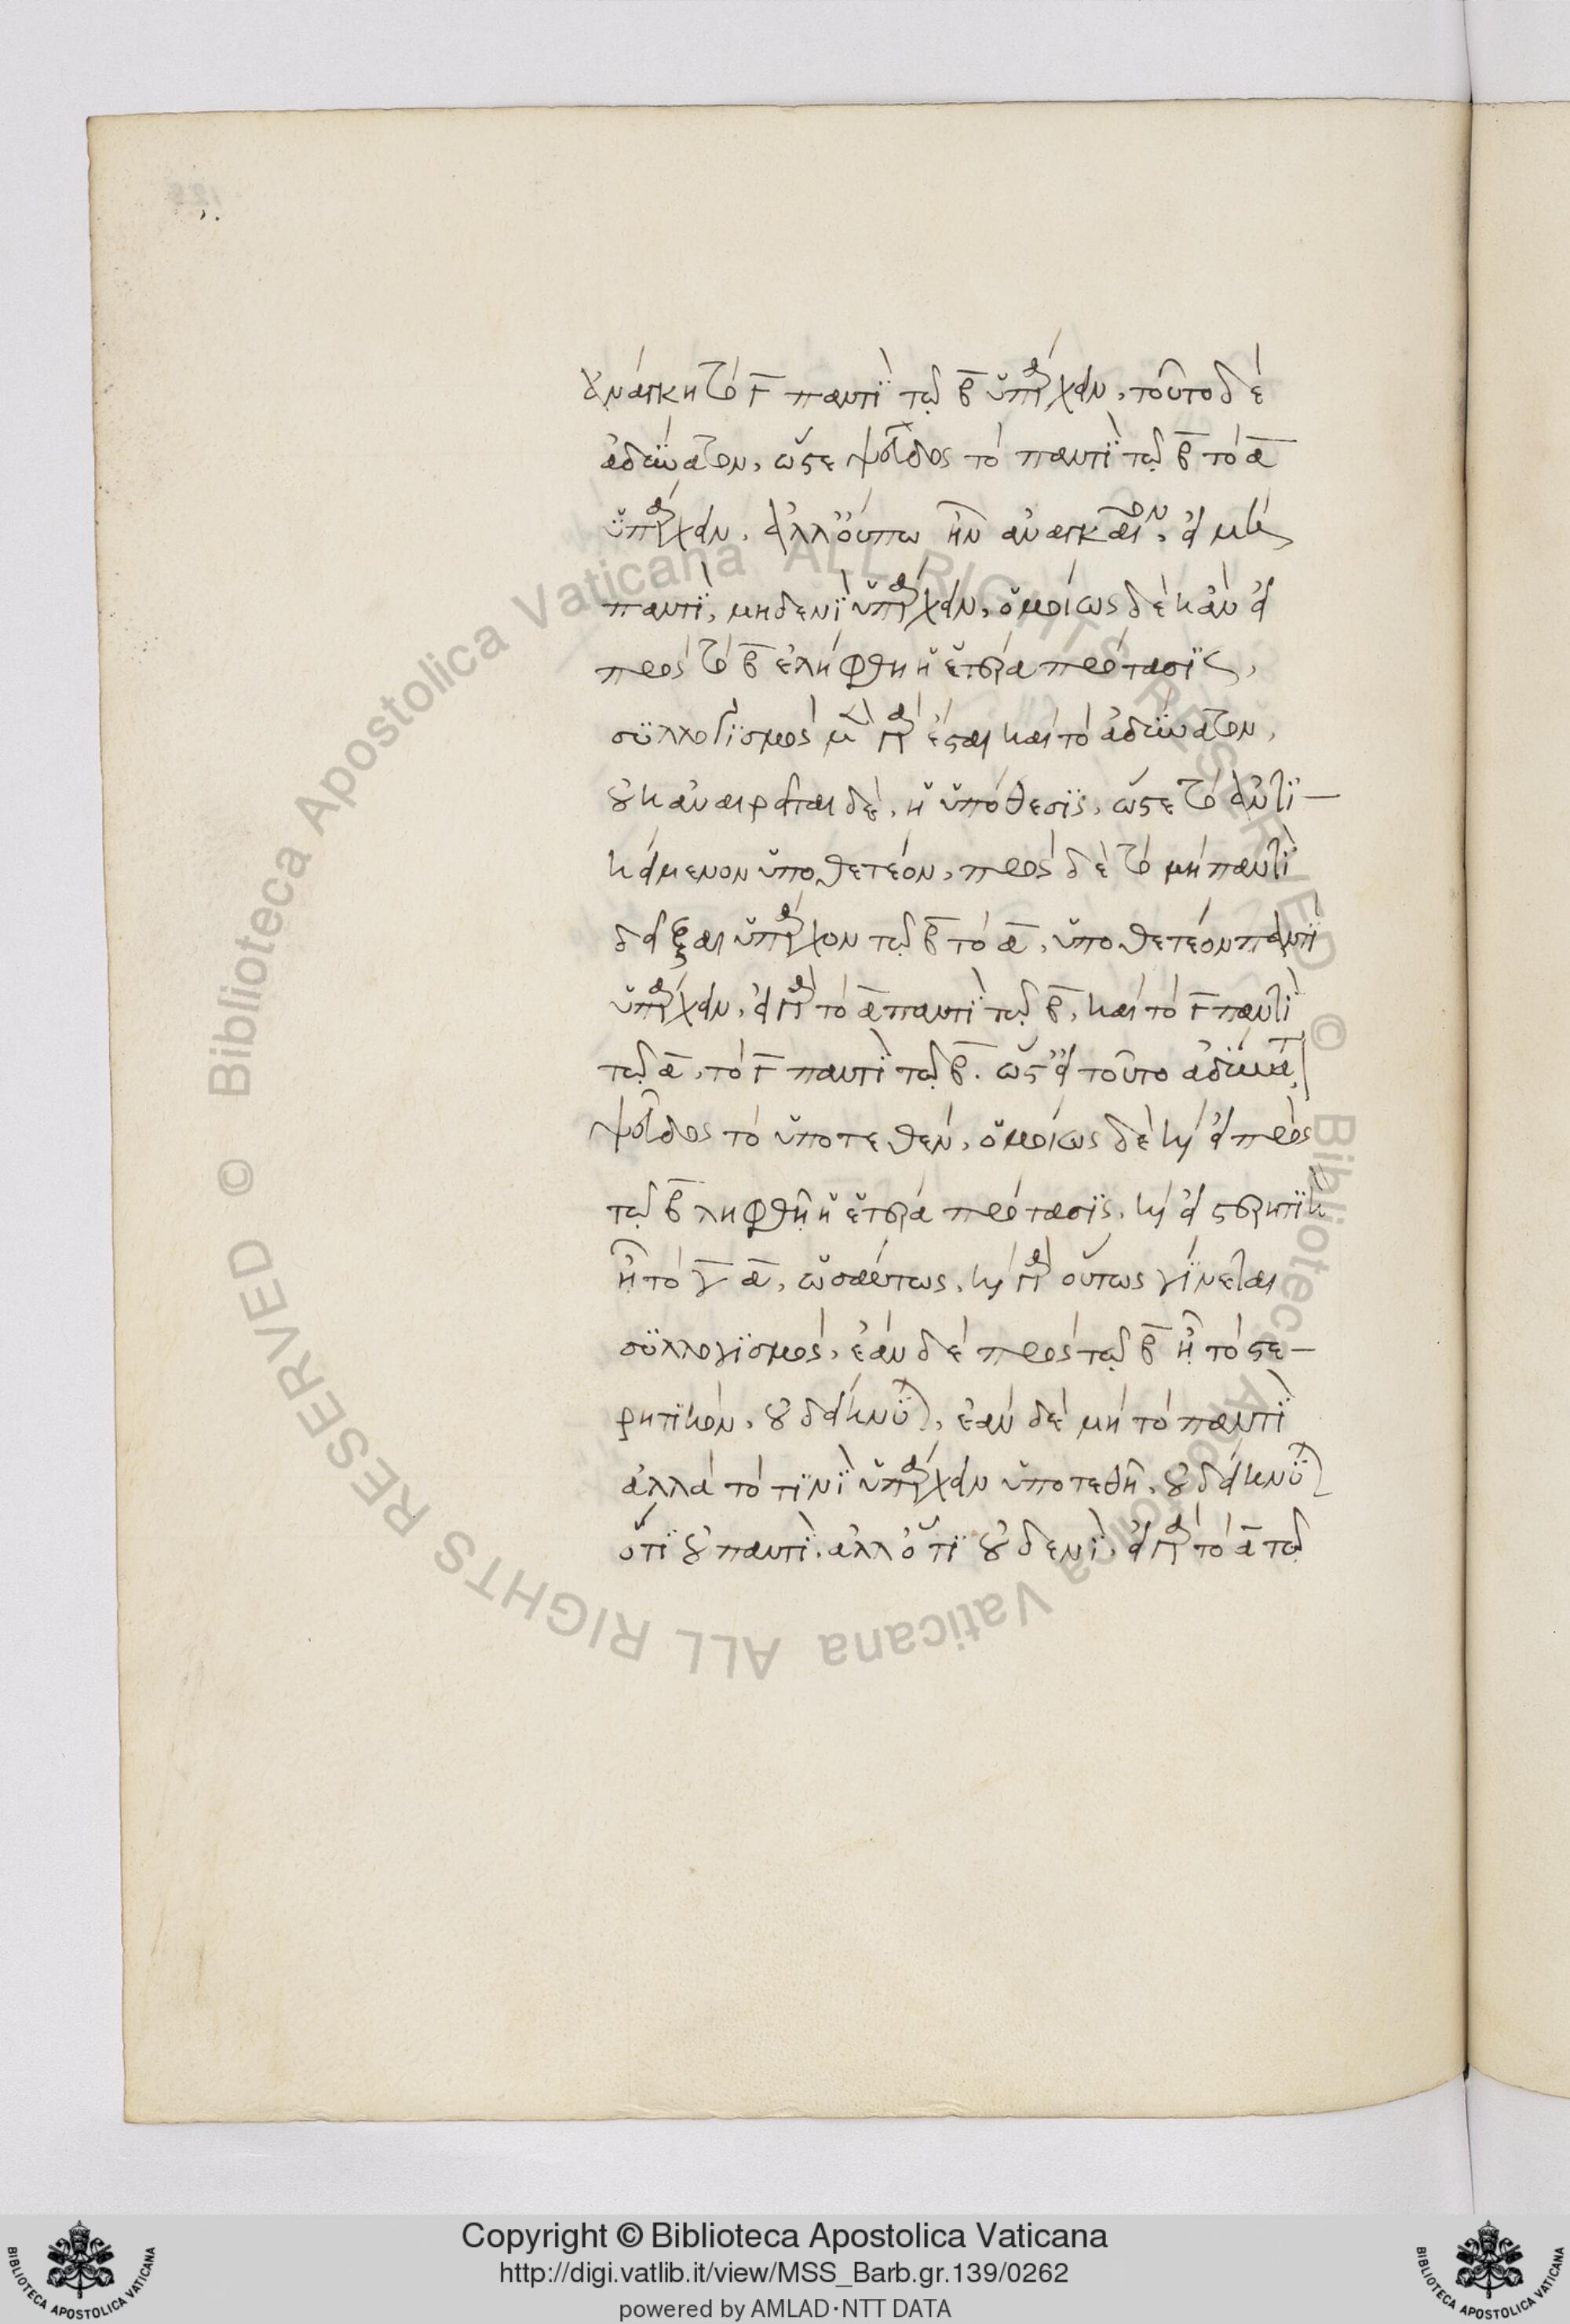 ἀνάγκη τὸ Γ παντὶ τῷ Β ὑπάρχειν, τοῦτο δὲ
ἀδύνατον, ὥστε ψεῦδος τὸ παντὶ τῷ Β τὸ Α
ὑπάρχειν. ἀλλ' οὔπω ἦν ἀναγκαῖον, εἰ μὴ
παντὶ, μηδενὶ ὑπάρχειν, ὁμοίως δὲ κἂν εἰ
πρὸς τὸ Β ἐλήφθη ἡ ἑτέρα πρότασϊς,
σϋλλογϊσμὸς μὲν γὰρ ἔσται καὶ τὸ ἀδύνατον,
οὐκ ἀναιρεῖται δὲ, ἡ ὑπόθεσϊς, ὥστε τὸ ἀντϊ—
κείμενον ὑποθετέον, πρὸς δὲ τὸ μὴ παντὶ
δεῖξαι ὑπάρχον τῷ Β τὸ Α, ὑποθετέον παντὶ
ὑπάρχειν, εἰ γὰρ τὸ Α παντὶ τῷ Β, καὶ τὸ Γ παντὶ
τῷ Α, τὸ Γ παντὶ τῷ Β. ὥστ' εἰ τοῦτο ἀδύνατ
ψεῦδος τὸ ὑποτεθέν, ὁμοίως δὲ καὶ εἰ πρὸς
τῷ Β ληφθῆ ἡ ἑτέρα πρότασϊς, καὶ εἰ στερητϊκ
ᾖ τὸ γ Α, ὡσαύτως, καὶ γὰρ οὕτως γίνεται
σϋλλογϊσμός, ἐὰν δὲ πρὸς τῷ Β ᾖ τὸ στε—
ρητϊκόν, οὐ δείκνυται, ἐὰν δὲ μὴ τὸ παντὶ
ἀλλὰ τὸ τϊνὶ ὑπάρχειν ὑποτεθῆ, οὐ δείκνυται
ὅτϊ οὐ παντὶ. ἀλλ' ὅτϊ οὐδενὶ, εἰ γὰρ τὸ Α τῷ
Copyright © Biblioteca Apostolica Vaticana
http://digi.vatlib.it/view/MSS_Barb.gr.139/0262
powered by AMLAD·NTT DATA